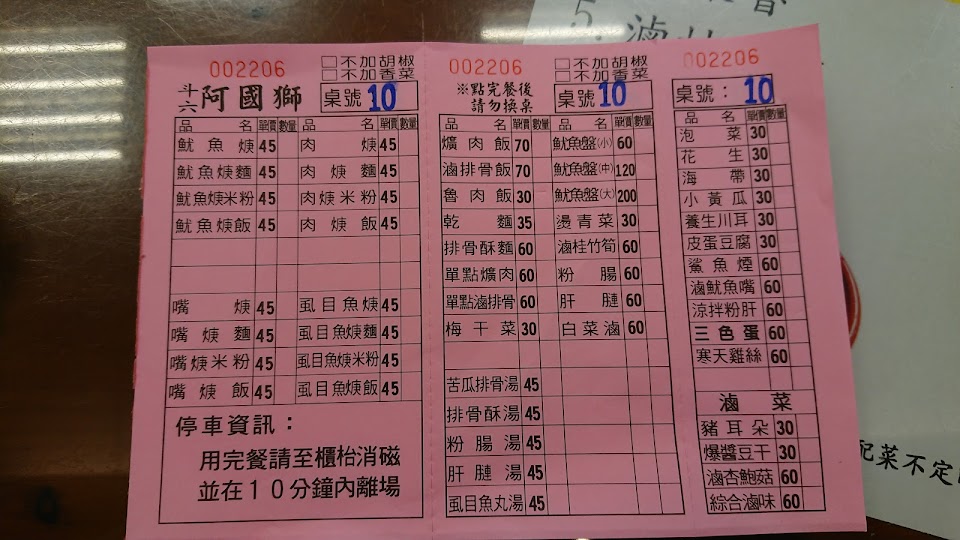 002206
□不加胡椒
□不加香菜
斗六 阿國獅 桌號 10
品名 單價 數量 品名 單價 數量
魷魚焿 45 肉焿 45
魷魚焿麵 45 肉焿麵 45
魷魚焿米粉 45 肉焿米粉 45
魷魚焿飯 45 肉焿飯 45
嘴焿 45 虱目魚焿 45
嘴焿麵 45 虱目魚焿麵 45
嘴焿米粉 45 虱目魚焿米粉 45
嘴焿飯 45 虱目魚焿飯 45
停車資訊：
用完餐請至櫃枱消磁
並在10分鐘內離場
002206
□不加胡椒
□不加香菜
※點完餐後
請勿換桌
桌號 10
品名 單價 數量 品名 單價 數量
爌肉飯 70 魷魚盤(小) 60
滷排骨飯 70 魷魚盤(中) 120
魯肉飯 30 魷魚盤(大) 200
乾麵 35 燙青菜 30
排骨酥麵 60 滷桂竹筍 60
單點爌肉 60 粉腸 60
單點滷排骨 60 肝腱 60
梅干菜 30 白菜滷 60
苦瓜排骨湯 45
排骨酥湯 45
粉腸湯 45
肝腱湯 45
虱目魚丸湯 45
002206
桌號： 10
品名 單價 數量
泡菜 30
花生 30
海帶 30
小黃瓜 30
養生川耳 30
皮蛋豆腐 30
鯊魚煙 60
滷魷魚嘴 60
涼拌粉肝 60
三色蛋 60
寒天雞絲 60
滷菜
豬耳朵 30
爆醬豆干 30
滷杏鮑菇 60
綜合滷味 60
5
滷
配菜不定